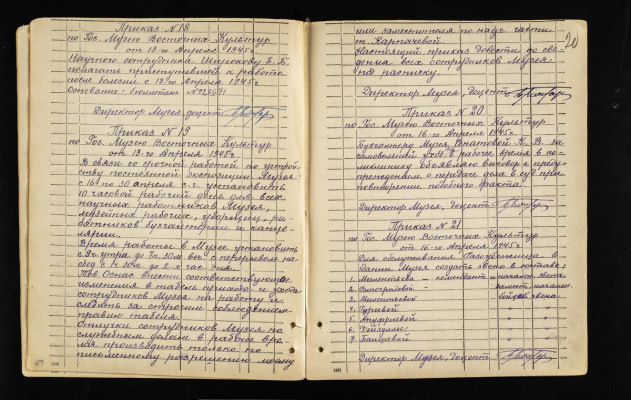 Приказ N 18
по Гос. Музею Восточных Культур
от 13-го Апреля 1945г.
Научного сотрудника Е. Б.
полагать приступившей к работе
после болезни с 13го Апреля 1945г.
Основание: бюллетень
Директор Музея, доцент
Приказ N 19
по Гос. Музею Восточных Культур
от 13-го Апреля 1945г.
В связи со срочной работой по устрой-
ству постоянной экспозиции Музея
с 16го по 30 апреля с.г. установить
10 часовой рабочий день для всех
научных работников Музея,
музейных рабочих, уборщиц, ра-
ботников бухгалтерии и канце-
лярии.
Время работы в Музее установить
с 9ч. утра до 7ч. 30м. веч. с перерывом на
обед с 1ч. 30м. до 2-х час. дня.
Тов. Опнас внести соответствующие
изменения в табель прихода и ухода
сотрудников Музея на работу и
следить за строгим соблюдением
правил табеля.
Отлучки сотрудников Музея по
служебным делам в рабочее вре-
мя производить только по
письменному разрешению моему
20
или заместителя по науч. части
т. Карпычевой.
Настоящий приказ довести до све-
дения всех сотрудников Музея
под расписку.
Директор Музея, Доцент
Приказ N 20
по Гос. Музею Восточных Культур
от 16-го Апреля 1945г.
Бухгалтеру Музея, К. В. за
самовольный уход в рабочее время в по-
ликлинику объявляю выговор с преду-
преждением о передаче дела в суд при
повторении подобного факта.
Директор Музея, Доцент
Приказ N 21
по Гос. Музею Восточных Культур
от 16-го Апреля 1945г.
Для обслуживания Газоубежища в
здании Музея создать звено в составе:
1. Мелентьева - комендант и начальн. звена
2. Виноградовой - заместит. начальн.
3. Мелентьевой бойцов звена
4. Гуреевой " "
5. Ануфриевой " "
6. " "
7. " "
Директор Музея, Доцент